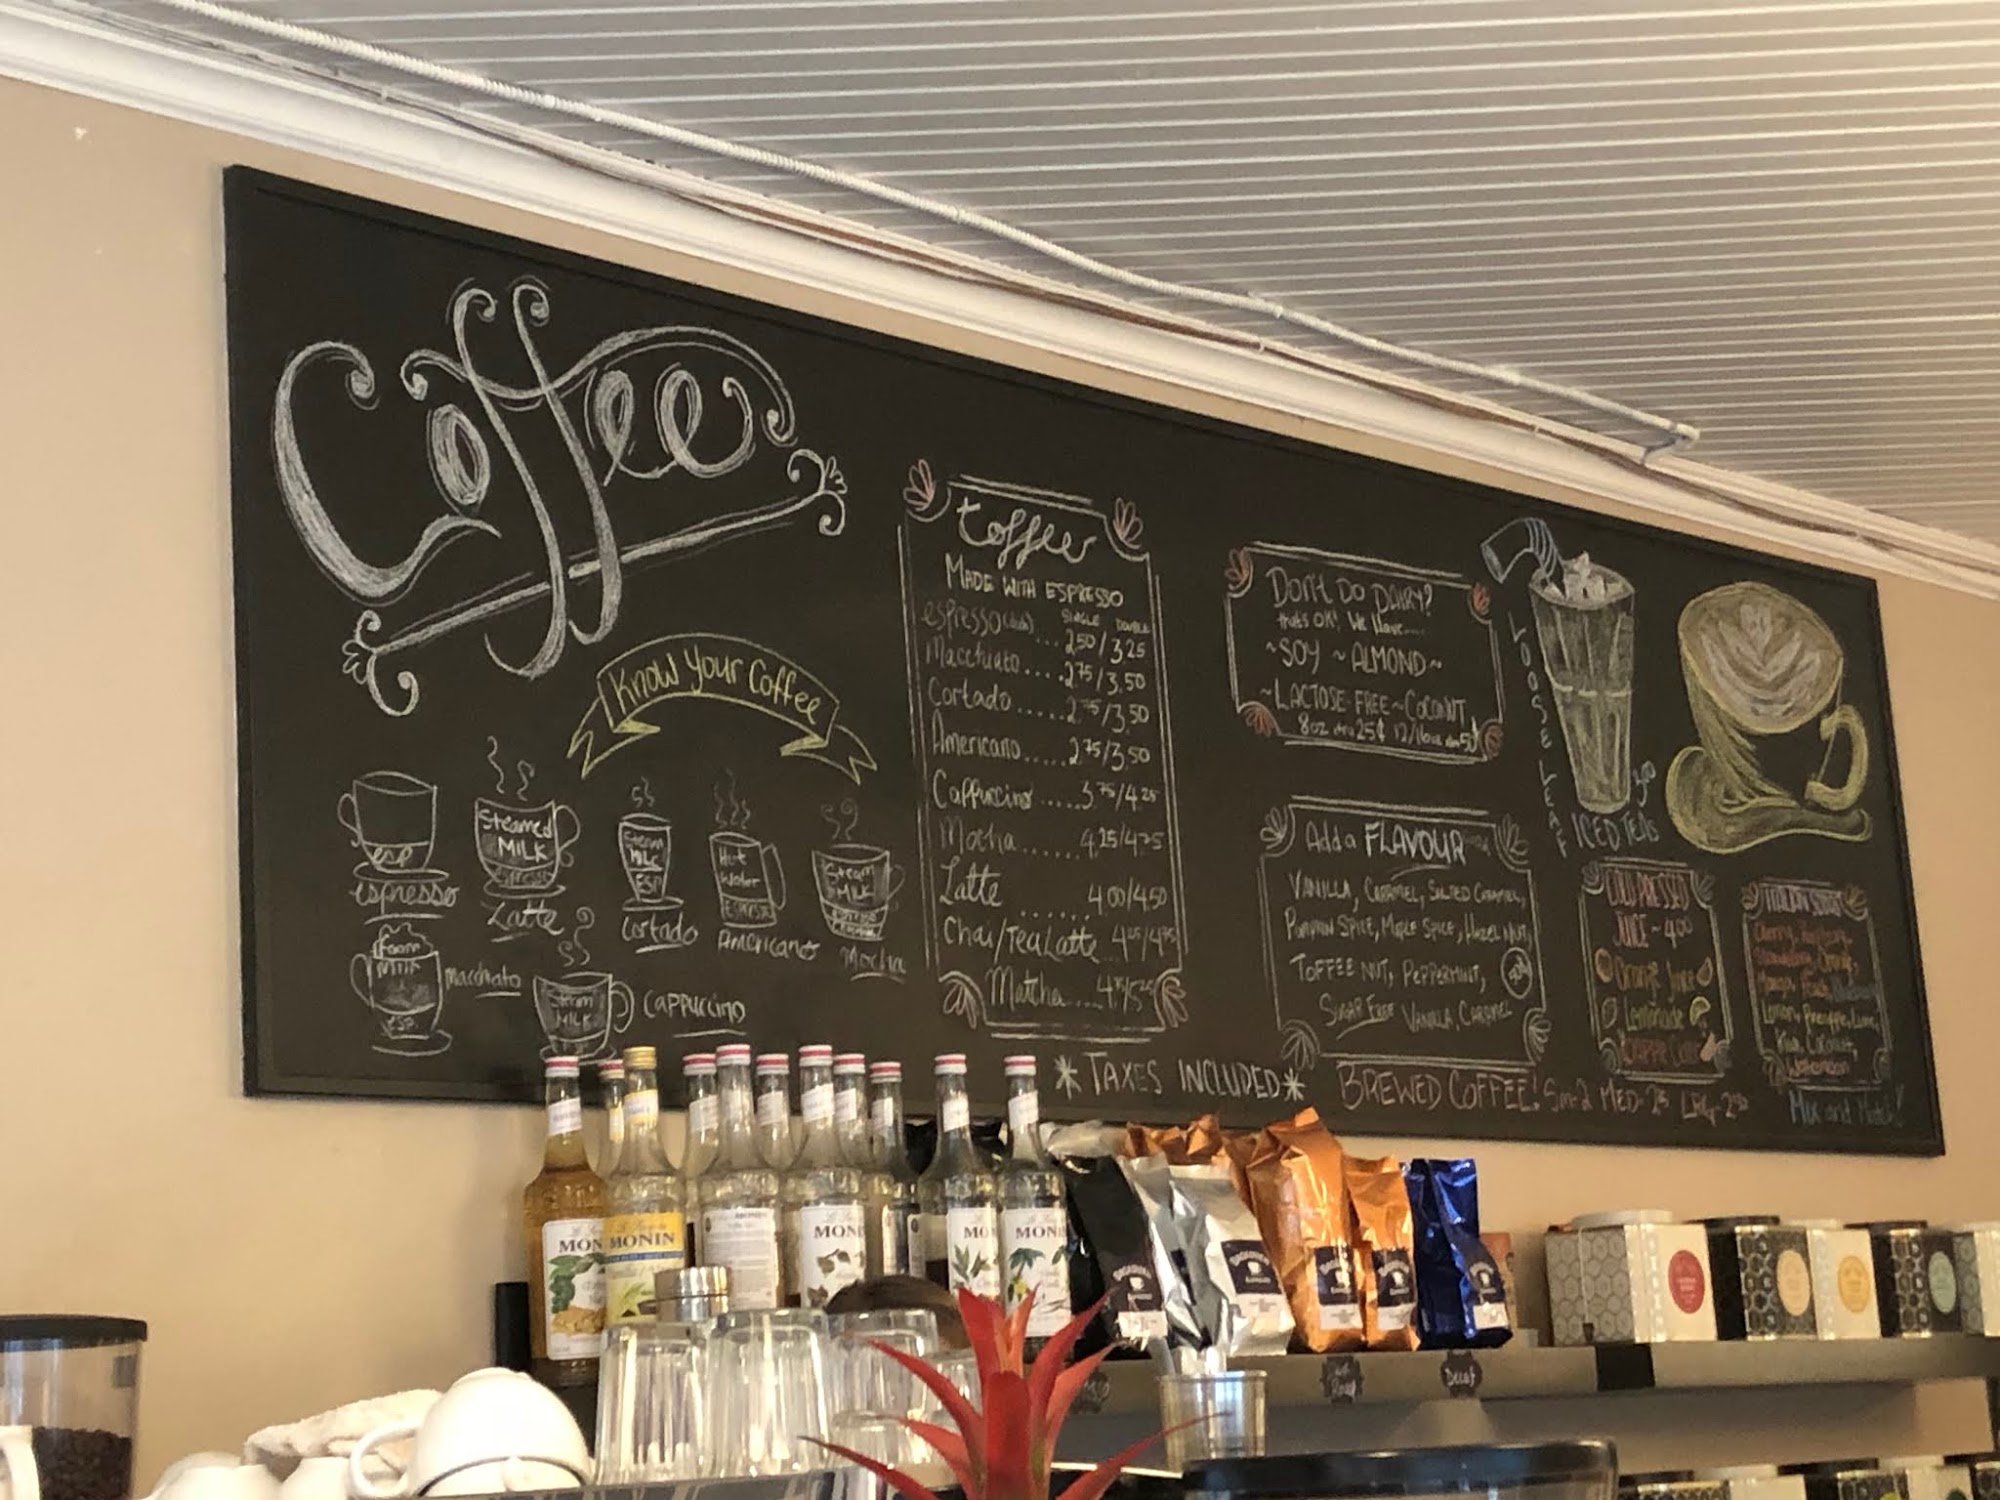 Coffee
Know Your Coffee
esp
espresso
Steamed
MILK
espresso
Latte
Steam
MILK
ESP
Cortado
Hot
Water
ESPRESSO
Americano
Steam
MILK
Mocha
foam
MILK
esp.
Macchiato
Steam
MILK
Cappuccino
Coffee
MADE WITH ESPRESSO
SINGLE DOUBLE
espresso 2.50/3.25
Macchiato....2.75/3.50
Cortado.....2.75/3.50
Americano.....2.75/3.50
Cappuccino.....3.75/4.25
Mocha......4.25/4.75
Latte ......4.00/4.50
Chai/Tea Latte
Matcha....
*TAXES INCLUDED*
Don't Do DAIRY?
thats OK! We Have....
~SOY ~ALMOND~
~LACTOSE FREE~COCONUT
8oz xtra 25¢ 12/16oz xtra
Add a FLAVOUR
VANILLA, CARAMEL, SALTED CARAMEL,
PUMPKIN SPICE, MAPLE SPICE, HAZEL NUT,
TOFFEE NUT, PEPPERMINT,
SUGAR FREE VANILLA, CARAMEL
LOOSE LEAF
ICED TEAS
COLD PRESSED
JUICE ~ 4.00
Orange Juice
Lemonade
ITALIAN SODAS
Lemon, Pineapple, Lime,
Kiwi, Coconut,
Watermelon
Mix and Match!
BREWED COFFEE! Sm-2 MED- LRG-
MONIN
MONIN
MONIN
Decaf